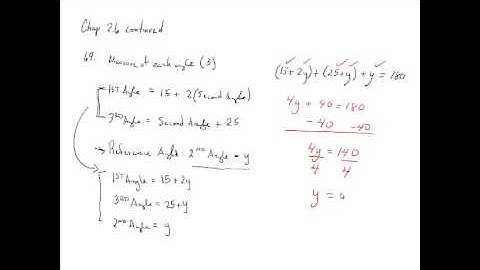 Chap 2.6 continued
69. Measure of each angle (3)
1ST Angle = 15 + 2(Second Angle)
3RD Angle = Second Angle + 25
Reference Angle: 2ND Angle = y
1ST Angle = 15 + 2y
3RD Angle = 25 + y
2ND Angle = y
(15 + 2y) + (25 + y) + y = 180
4y + 40 = 180
- 40 - 40
4y = 140
4 4
y =